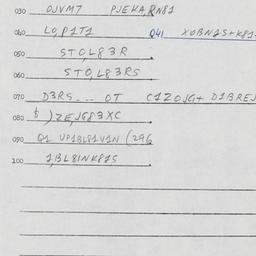 030 OJVM7 PJEKA,RN81
040 LO,P1T1 Q41 XOBN1S+K81-
050 STOL83R
060 STO,L83RS
070 D3RS--- OT C1ZOJG+ D1BREJ
080 $ )ZE,JG83XC
090 Q1 UP1BL81V1N (296
100 1,BL8INK81S